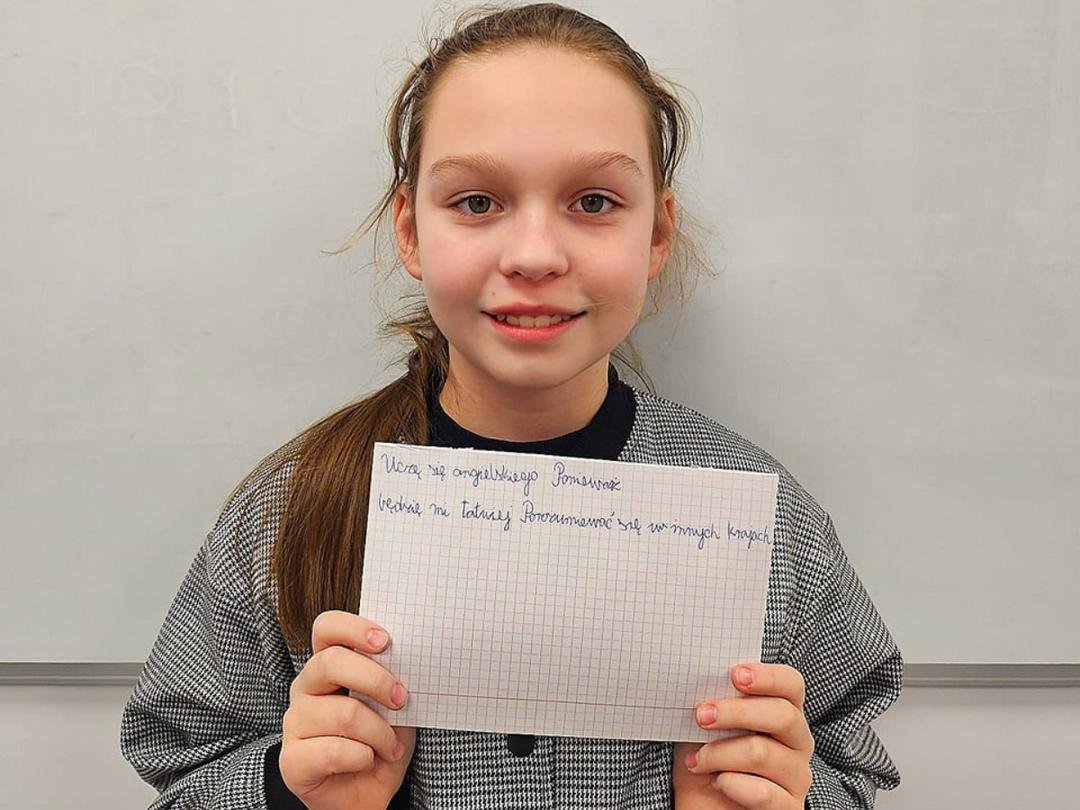 Uczę się angielskiego Ponieważ
będzię mi łatusej Porozumiewać się w innych krajach